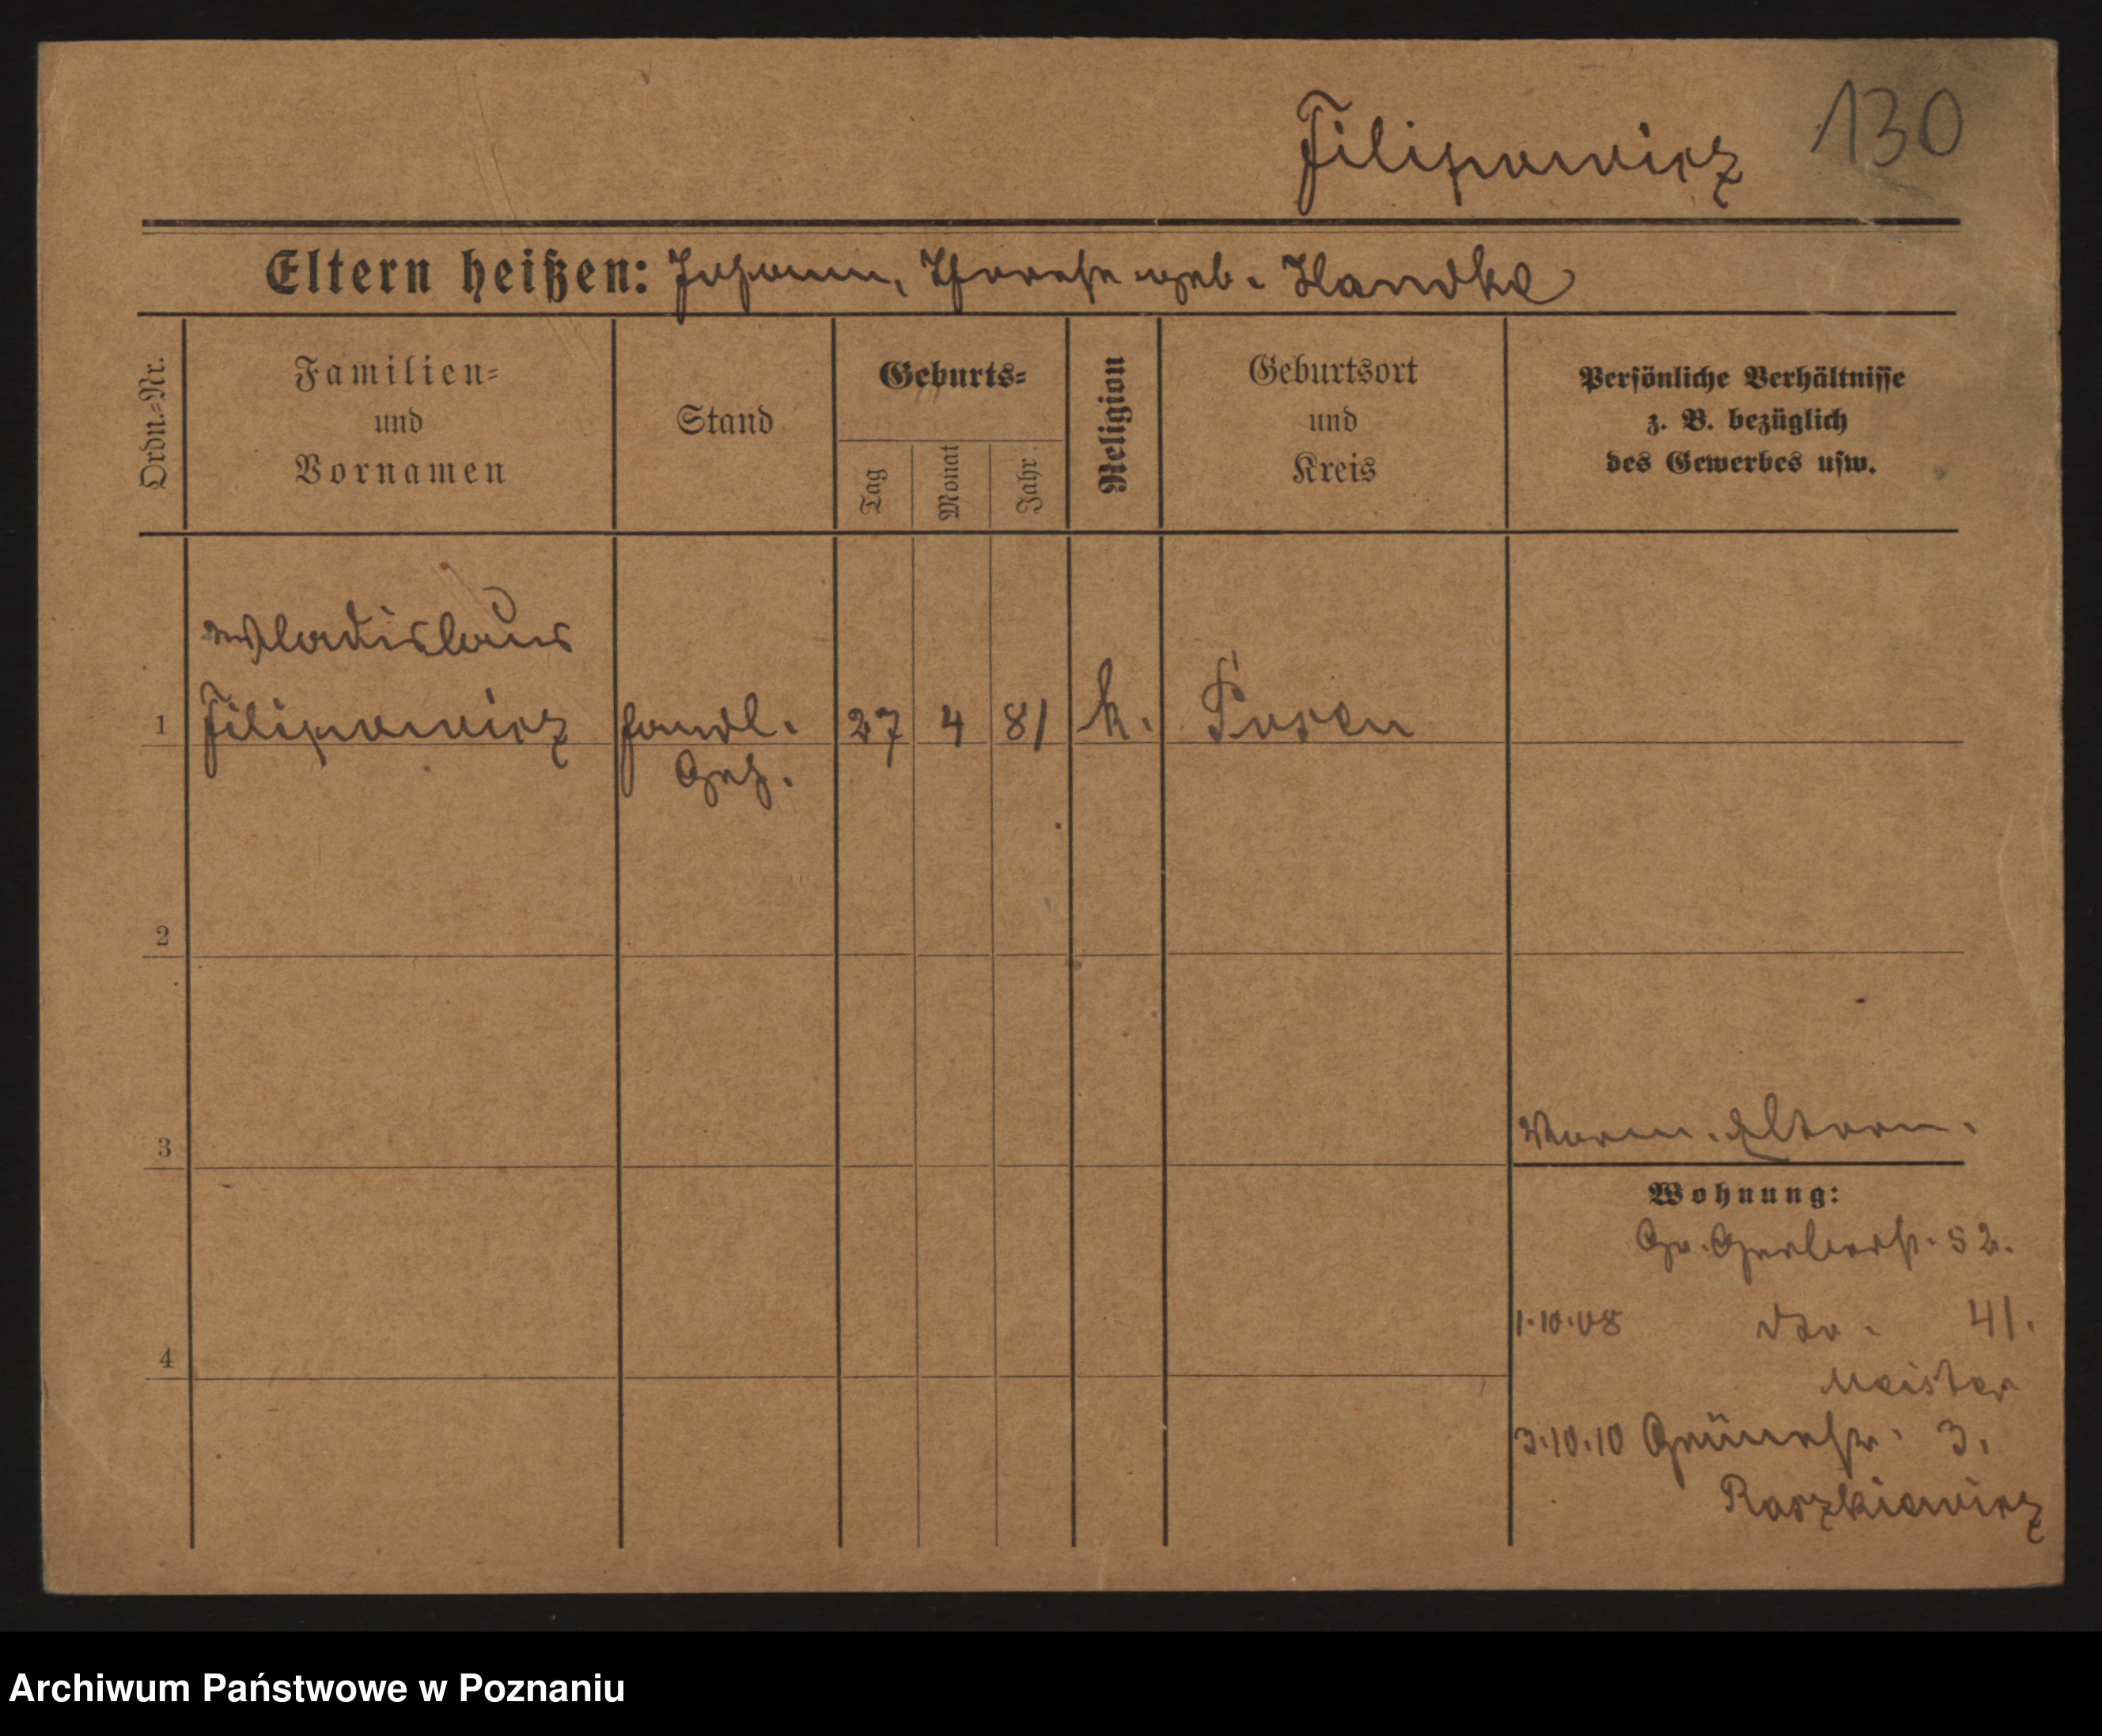 Filipowicz 130
Eltern heißen: Johann, Therese geb. Handke
Ordn.=Nr.
Familien=
und
Vornamen
Stand
Geburts=
Tag
Monat
Jahr
Religion
Geburtsort
und
Kreis
Persönliche Verhältnisse
z. B. bezüglich
des Gewerbes usw.
Wladislaus
1 Filipowicz Handl. 27 4 81 k. Posen
Geh.
2
3 Eltern.
Wohnung:
Gr. Gerberstr. 52.
1.10.08 dto. 41.
Meister
4
3.10.10 Grünestr. 3.
Raszkiewicz
Archiwum Państwowe w Poznaniu